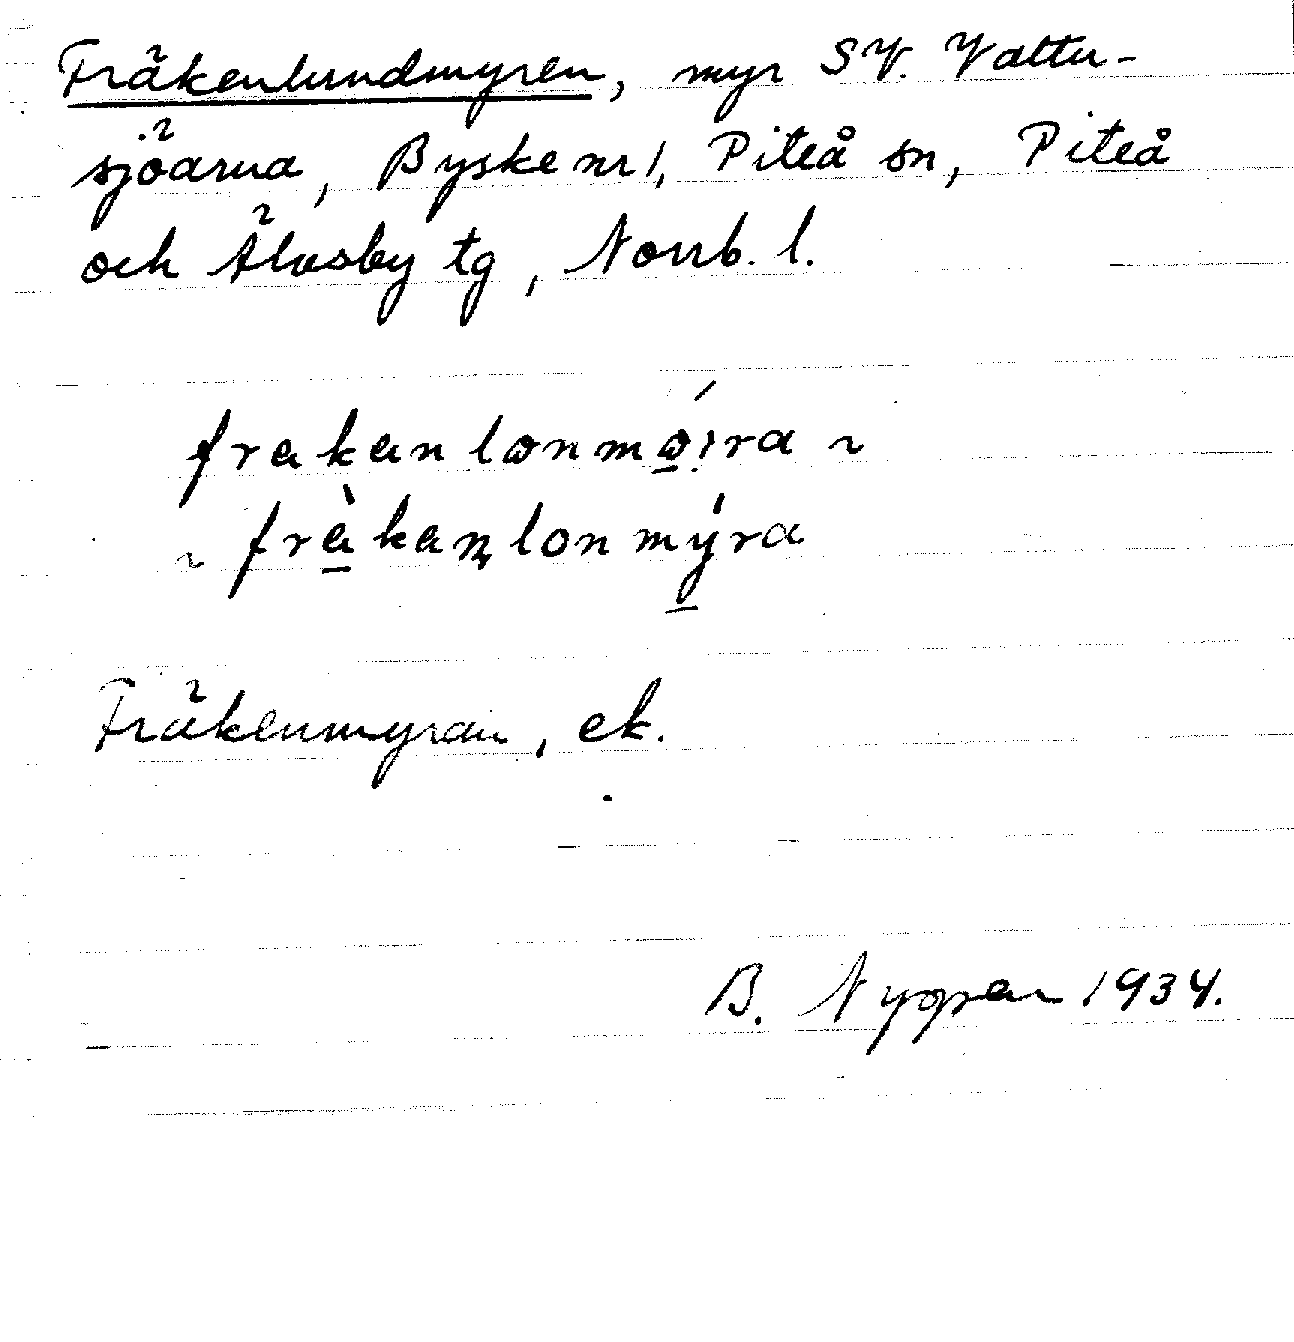 Fräkenlundmyren, myr SV. Vattu-
sjöarna, Byske nr 1, Piteå sn, Piteå
och Älvsby tg, Norrb. l.
frakanlonmǿ̱i̯ra ~
~ frà̱kanlonmý̱ra
Fräkenmyran, ek.
B. Nygren 1934.